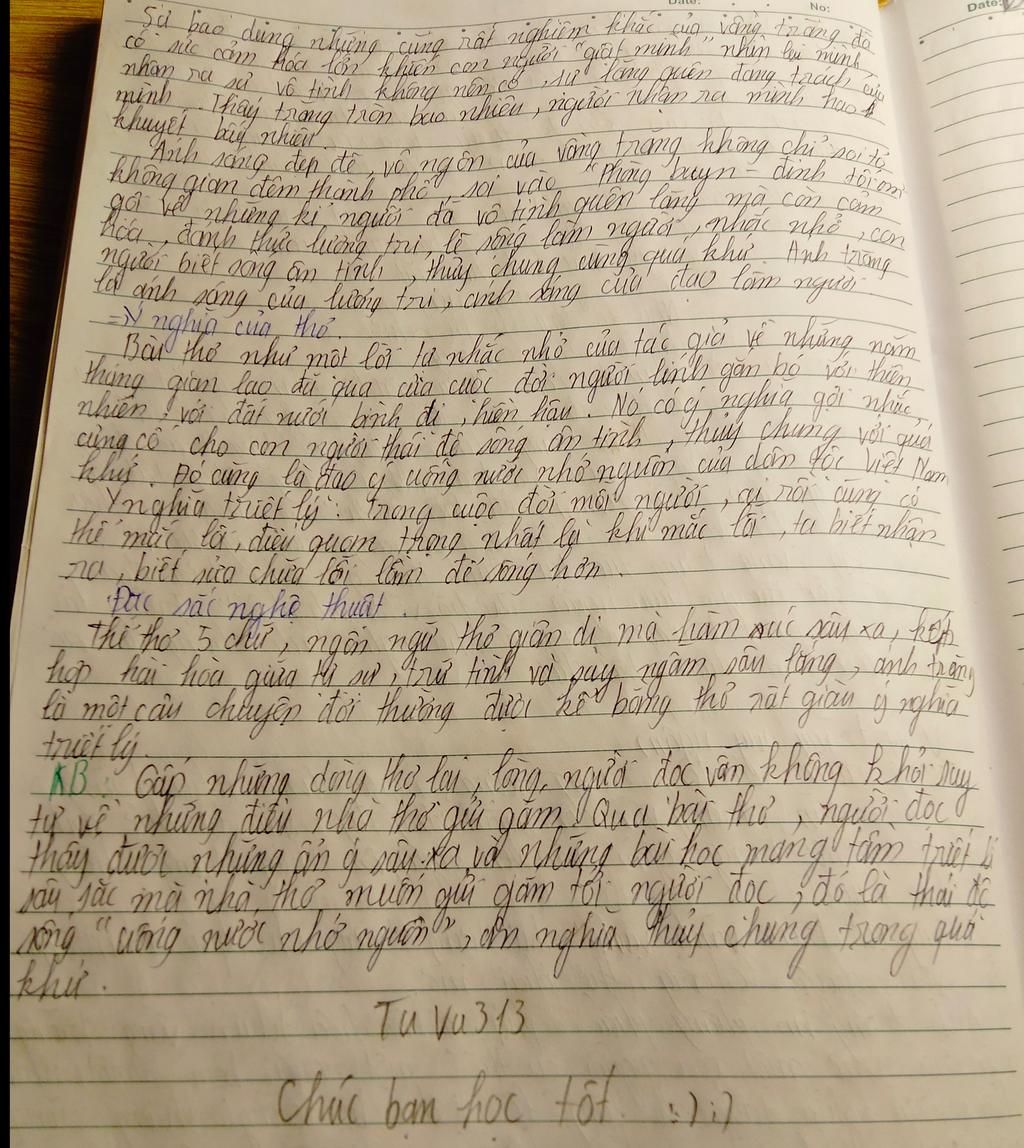 Date: No: Date:
Sự bao dung nhưng cũng rất nghiêm khắc của vầng trăng đã
có sức cảm hóa lớn khiến con người "giật mình" nhìn lại mình
nhận ra sự vô tình không nên có, sự lãng quên đáng trách của
mình. Thấy trăng tròn bao nhiêu, người nhận ra mình hao
khuyết bấy nhiêu.
Ánh sáng đẹp đẽ, vô ngôn của vầng trăng không chỉ soi tỏ
không gian đêm thành phố, soi vào "phòng buyn - đinh tối om"
gợi về những kí người đã vô tình quên lãng mà còn cảm
hóa, đánh thức lương tri, lẽ sống làm người, nhắc nhở, con
người biết sống ân tình, thủy chung cùng quá khứ. Ánh trăng
là ánh sáng của lương tri, ánh sáng của đạo làm người
=> Ý nghĩa của thơ.
Bài thơ như một lời tự nhắc nhở của tác giả về những năm
tháng gian lao đã qua của cuộc đời người lính gắn bó với thiên
nhiên, với đất nước bình dị, hiền hậu. Nó có ý nghĩa gợi nhắc,
củng cố cho con người thái độ sống ân tình, thủy chung với quá
khứ. Đó cũng là đạo lý uống nước nhớ nguồn của dân tộc Việt Nam
Ý nghĩa triết lý: Trong cuộc đời mỗi người, ai rồi cũng có
thể mắc lỗi, điều quan trọng nhất là khi mắc lỗi, ta biết nhận
ra, biết sửa chữa lỗi lầm để sống hơn.
Đặc sắc nghệ thuật.
Thể thơ 5 chữ, ngôn ngữ thơ giản dị mà hàm súc sâu xa, kết
hợp hài hòa giữa tự sự, trữ tình và suy ngẫm sâu lắng, ánh trăng
là một câu chuyện đời thường được kể bằng thơ rất giàu ý nghĩa
triết lý.
KB: Gấp những dòng thơ lại, lòng người đọc vẫn không khỏi suy
tư về những điều nhà thơ gửi gắm. Qua bài thơ, người đọc
thấy được những ẩn ý sâu xa và những bài học mang tầm triết lí
sâu sắc mà nhà thơ muốn gửi gắm tới người đọc, đó là thái độ
sống "uống nước nhớ nguồn", ân nghĩa thủy chung trong quá
khứ.
Tu Vu 313
Chúc bạn học tốt. :) ;)